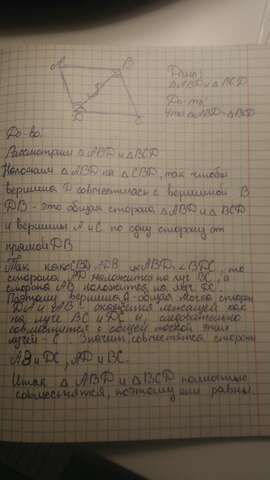 A
B
D
C
Дано:
△ABD и △BCD
До-ть:
что △ABD = △BCD
До-во:
Рассмотрим △ABD и △BCD
Наложим △ABD на △CBD, так чтобы
вершина D совместилась с вершиной B
DB - это общая сторона △ABD и △BCD
и вершины A и C по одну сторону от
прямой DB
Так как ∠ABD = ∠BDC, то
сторона AD наложится на луч BC, а
сторона AB наложится на луч DC.
Поэтому вершина A общая точка сторон
DA и AB - окажется лежащей как
на луче BC и DC и, следовательно
совместится с общей точкой этих
лучей - C. Значит совместятся стороны
AB и DC, AD и BC.
Итак △ABD и △BCD полностью
совместятся, поэтому они равны.